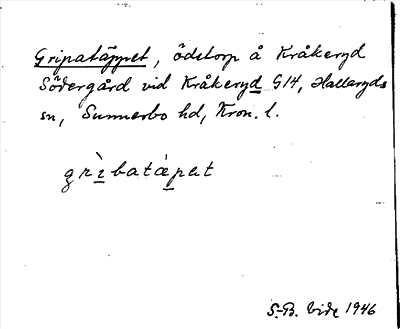 Gripatäppet, ödetorp å Kråkeryd
Södergård vid Kråkeryd G14, Hallaryds
sn, Sunnerbo hd, Kron. l.
grìbatæ̀pat
S.-B. Vide 1946